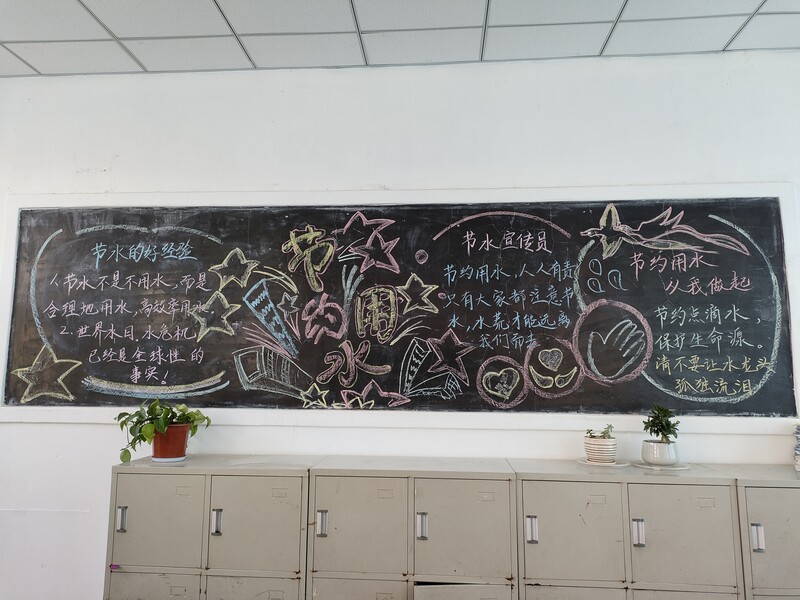 节水的好经验
1节水不是不用水,而是
合理地用水,高效率用水
2.世界水日.水危机
已经是全球性的
事实!
节约用水
节水宣传员
节约用水,人人有责
只有大家都注意节
水,水荒才能远离
我们而去
节约用水
从我做起
节约点滴水,
保护生命源。
请不要让水龙头
孤独流泪